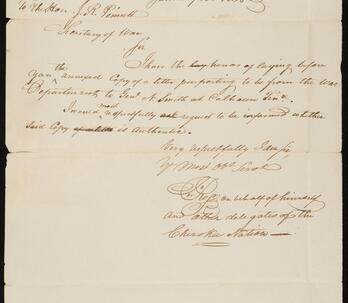 To the Hon. J. R. Poinsett
Secretary of War
Sir
I have the honor of laying before
you the annexed Copy of a letter purporting to be from the War
Department to Genl N. Smith at Calhoun Ten.
I would most respectfully request to be informed whether
said Copy is Authentic.
Very respectfully I am Sir,
Yr Most Obt Servt
Jno Ross on behalf of himself
and other delegates of the
Cherokee Nation